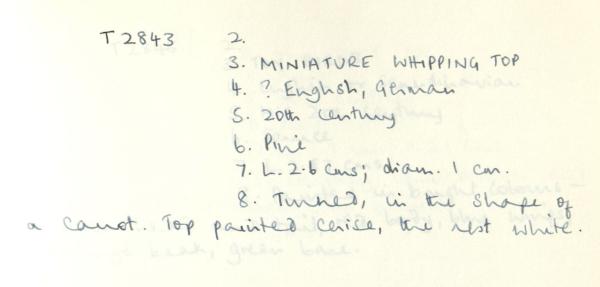 T 2843 2.
3. MINIATURE WHIPPING TOP
4. ? English, German
5. 20th century
6. Pine
7. L. 2.6 cms; diam. 1 cm.
8. Turned, in the shape of
a carrot. Top painted cerise, the rest white.